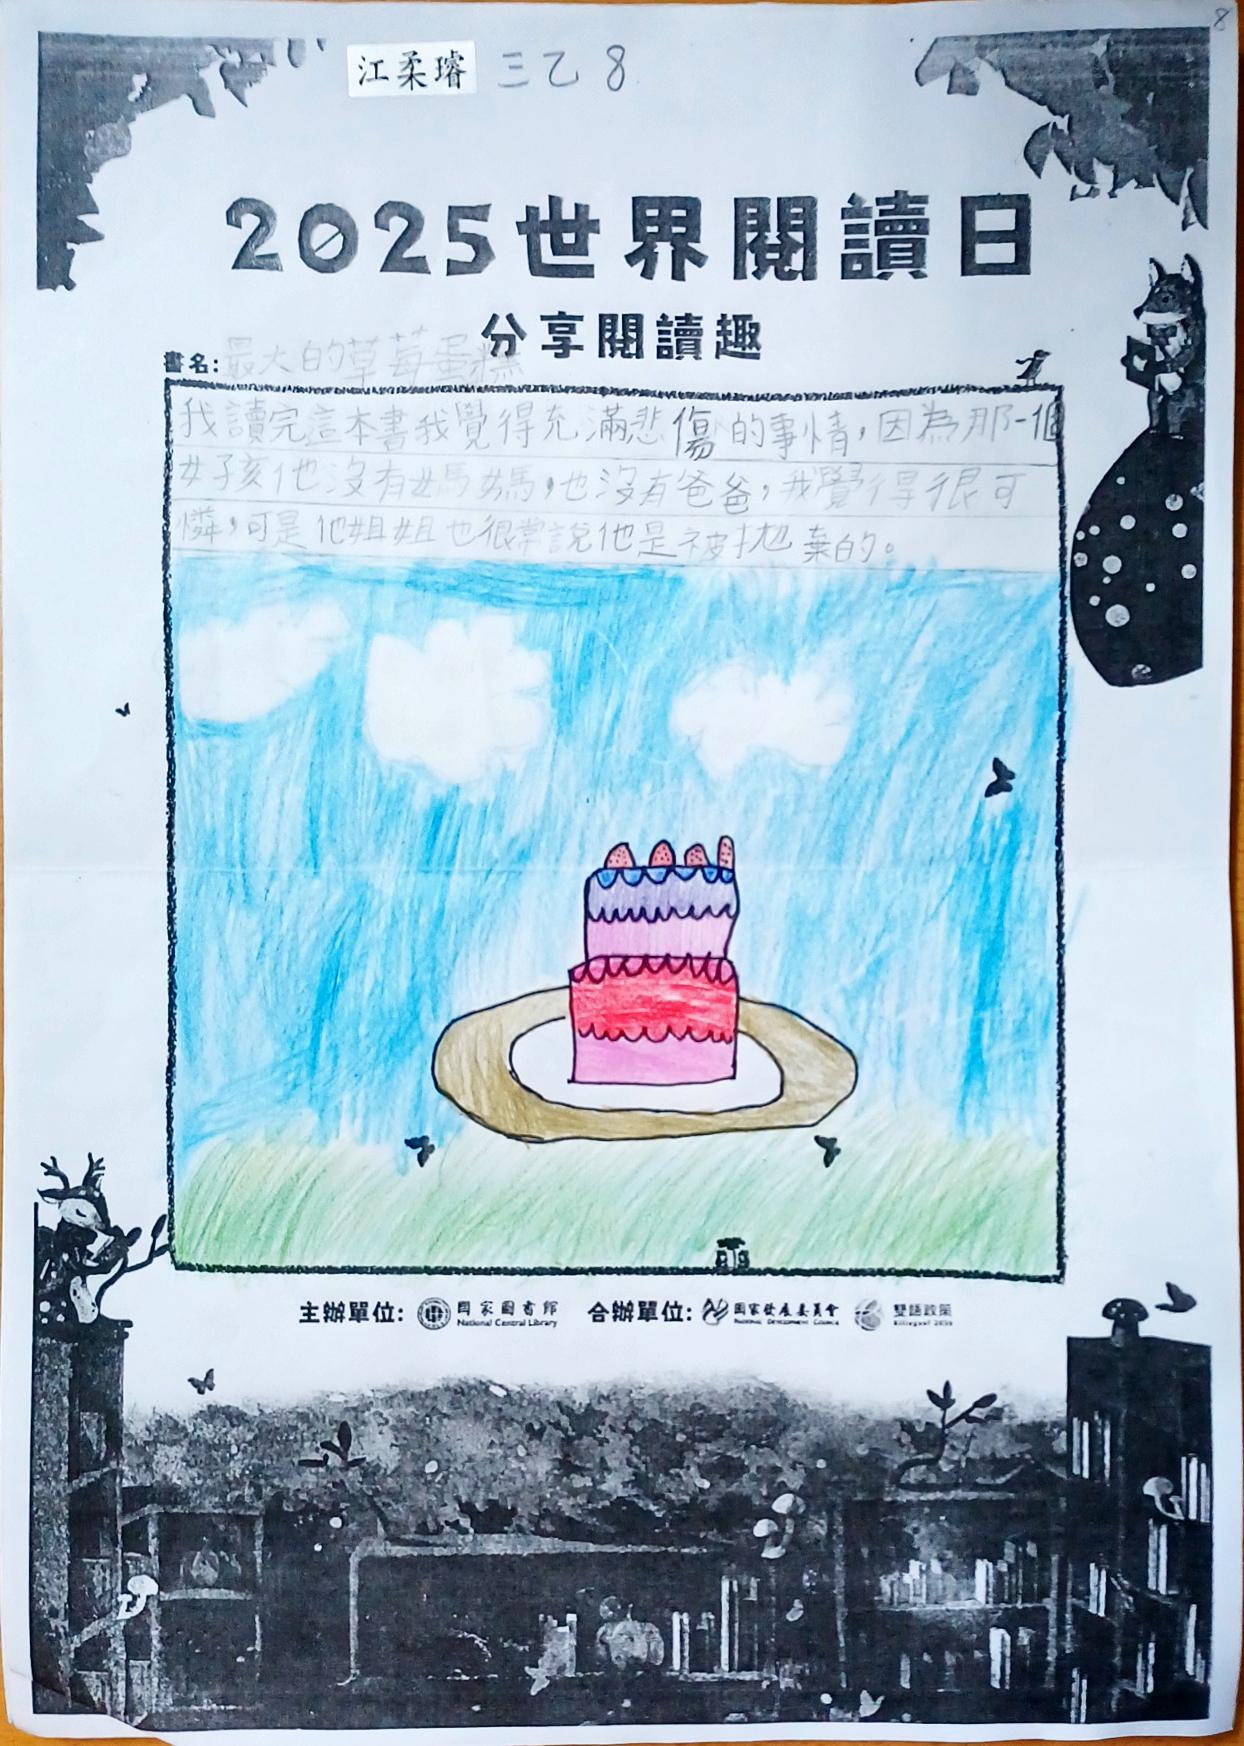 8
江柔璿 三乙 8
2025世界閱讀日
分享閱讀趣
書名:最大的草莓蛋糕
我讀完這本書我覺得充滿悲傷的事情,因為那一個
女孩他沒有媽媽,也沒有爸爸,我覺得很可
憐,可是他姐姐也很常說他是被拋棄的。
主辦單位: 國家圖書館 National Central Library 合辦單位: 國家發展委員會 National Development Council 雙語政策 Bilingual 2030